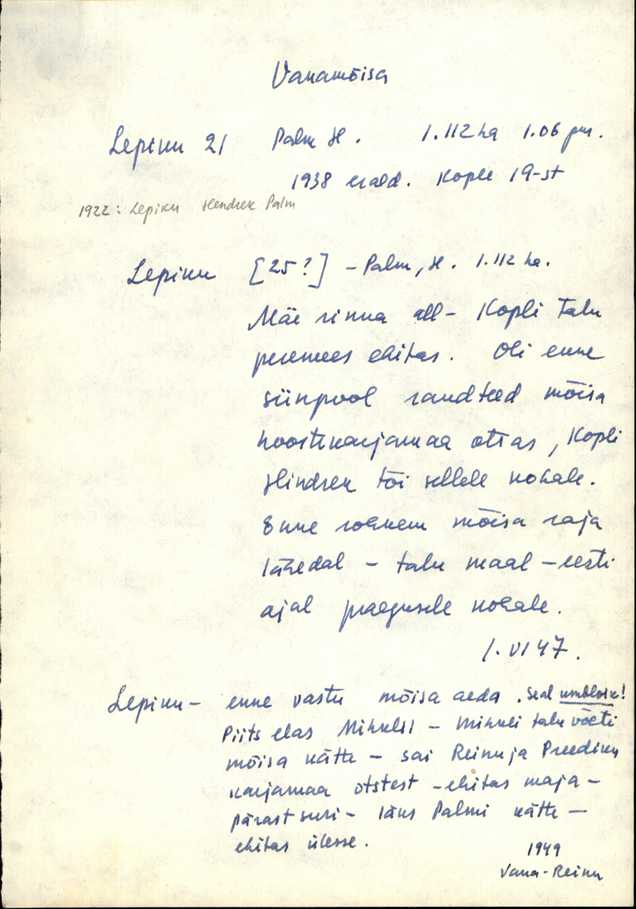 Vanamõisa
Lepiku 21 Palm H. 1.112 ha 1.06 pm.
1938 erald. Kople 19-st
1922: Lepiku Hendrek Palm
Lepiku [25?] - Palm, H. 1.112 ha.
Mäe rinna all - Kopli talu
peremees ehitas. Oli enne
siinpool randteed mõisa
hoostekarjamaa otsas, Kopli
Hindrek tõi sellele kohale.
Enne rohkem mõisa raja
lähedal - talu maal - eesti
ajal praegusele kohale.
1. VI 47.
Lepiku - enne vastu mõisa aeda. Seal
Piits elas Mihklil - Mihkli talu võeti
mõisa kätte - sai Reinu ja Preediku
karjamaa otstest - ehitas maja -
pärast suri - läks Palmi kätte -
ehitas ülesse.
1949
Vana-Reinu